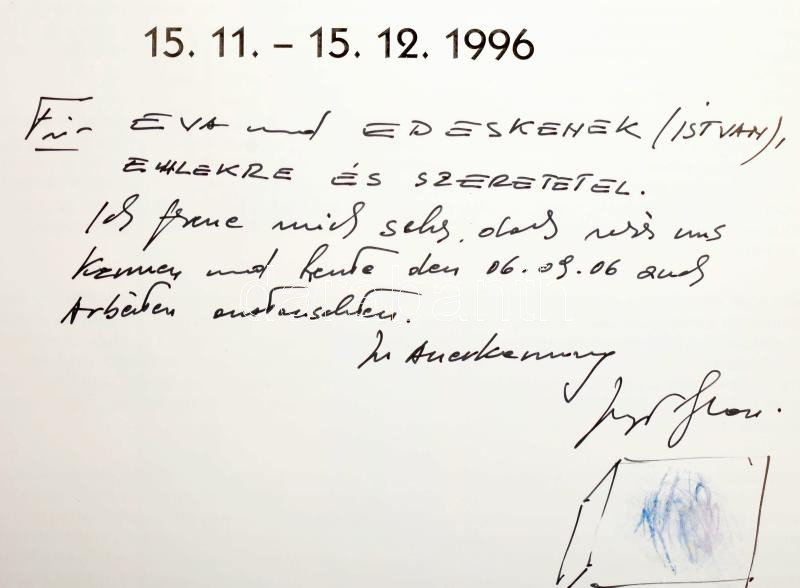 15. 11. – 15. 12. 1996
Für EVA und EDESKENEK (ISTVAN),
EMLEKRE ÉS SZERETETEL.
Ich freue mich sehr, daß wir uns
kennen und heute den 06.09.06 auch
Arbeiten austauschten.
In Anerkennung